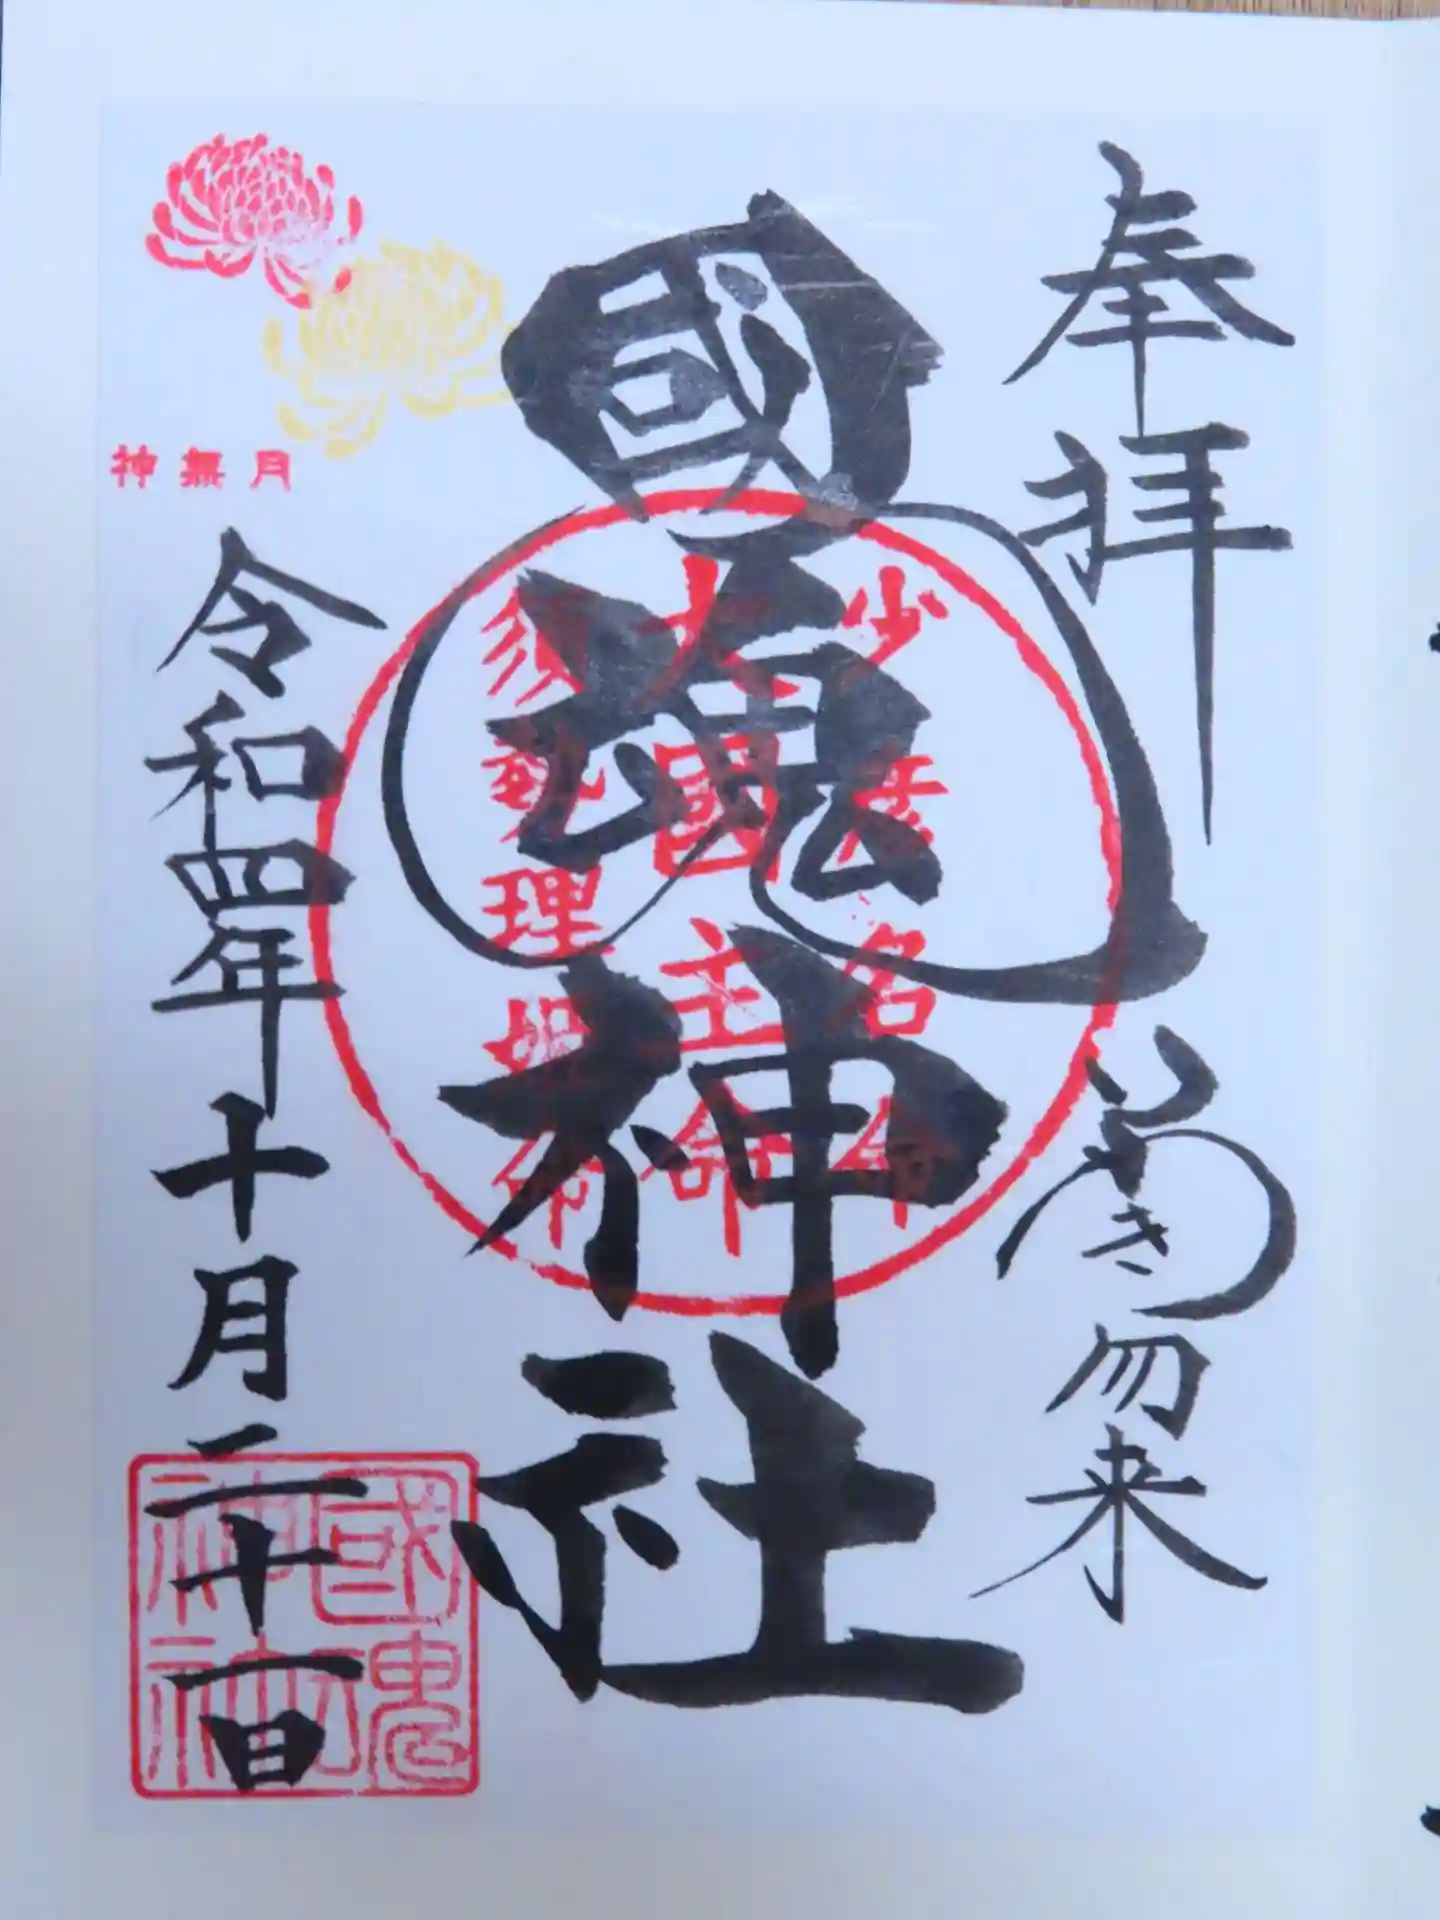 奉拝
いわき勿来
國魂神社
少彦名命
大國主命
須勢理姫命
神無月
令和四年十月二十一日
國魂
神社